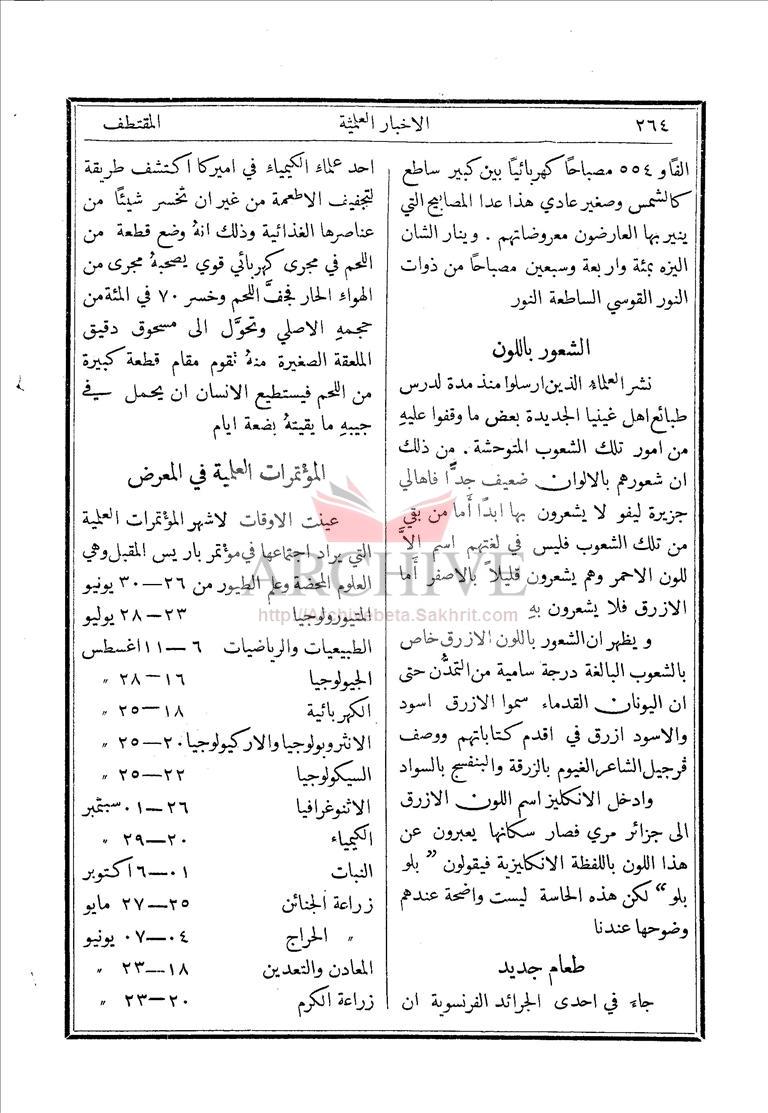 ٢٦٤ الاخبار العلمية المقتطف
الفًا و ٥٥٤ مصباحًا كهربائيًا بين كبير ساطع
كالشمس وصغير عادي هذا عدا المصابيح التي
ينير بها العارضون معروضاتهم . وينار الشان
اليزه بمئة واربعة وسبعين مصباحًا من ذوات
النور القوسي الساطعة النور
الشعور باللون
نشر العلماء الذين ارسلوا منذ مدة لدرس
طبائع اهل غينيا الجديدة بعض ما وقفوا عليهِ
من امور تلك الشعوب المتوحشة . من ذلك
ان شعورهم بالالوان ضعيف جدًّا فاهالي
جزيرة ليفو لا يشعرون بها ابدًا أَما من بقي
من تلك الشعوب فليس في لغتهم اسم الاَّ
للون الاحمر وهم يشعرون قليلاً بالاصفر أَما
الازرق فلا يشعرون بهِ
و يظهر ان الشعور باللون الازرق خاص
بالشعوب البالغة درجة سامية من التمدُّن حتى
ان اليونان القدماء سموا الازرق اسود
والاسود ازرق في اقدم كتاباتهم ووصف
ڤرجيل الشاعر الغيوم بالزرقة والبنفسج بالسواد
وادخل الانكليز اسم اللون الازرق
الى جزائر مري فصار سكانها يعبرون عن
هذا اللون باللفظة الانكليزية فيقولون " بلو
بلو " لكن هذه الحاسة ليست واضحة عندهم
وضوحها عندنا
طعام جديد
جاءَ في احدى الجرائد الفرنسوية ان
احد علماء الكيمياء في اميركا اكتشف طريقة
لتجفيف الاطعمة من غير ان تخسر شيئًا من
عناصرها الغذائية وذلك انهُ وضع قطعة من
اللحم في مجرى كهربائي قوي يصحبهُ مجرى من
الهواء الحار فجفَّ اللحم وخسر ٧٠ في المئة من
حجمهِ الاصلي وتحوَّل الى مسحوق دقيق
الملعقة الصغيرة منهُ تقوم مقام قطعة كبيرة
من اللحم فيستطيع الانسان ان يحمل في
جيبهِ ما يقيتهُ بضعة ايام
المؤتمرات العلمية في المعرض
عينت الاوقات لاشهر المؤتمرات العلمية
التي يراد اجتماعها في مؤتمر باريس المقبل وهي
العلوم المحضة وعلم الطيور من ٢٦—٣٠ يونيو
المتيورولوجيا ٢٣—٢٨ يوليو
الطبيعيات والرياضيات ٦—١١ اغسطس
الجيولوجيا ١٦—٢٨ "
الكهربائية ١٨—٢٥ "
الانثروبولوجيا والاركيولوجيا ٢٠—٢٥ "
السيكولوجيا ٢٢—٢٥ "
الاثنوغرافيا ٢٦—٠١ سبتمبر
الكيمياء ٢٠—٢٩ "
النبات ٠١—٦ اكتوبر
زراعة الجنائن ٢٥—٢٧ مايو
" الحراج ٠٤—٠٧ يونيو
المعادن والتعدين ١٨—٢٣ "
زراعة الكرم ٢٠—٢٣ "
ARCHIVE
http://Archivebeta.Sakhrit.com